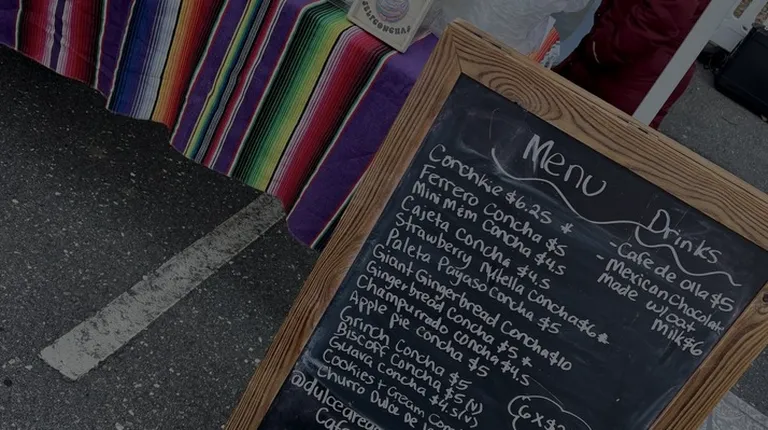 JUSTCONCHAS
Menu
Conchkie $6.25 *
Ferrero Concha $5
Mini M&M Concha $4.5
Cajeta Concha $4.5
Strawberry Nutella Concha $6 *
Paleta Payaso Concha $5
Giant Gingerbread Concha $10
Gingerbread Concha $5 *
Champurrado Concha $4.5
Apple Pie Concha $5
Grinch Concha $5
Biscoff Concha $5
Guava Concha $4.5 (V)
Cookies + Cream
Churro Dulce De
Drinks
- Cafe de Olla $5
- Mexican Chocolate
made w/oat
Milk $6
(6 x $